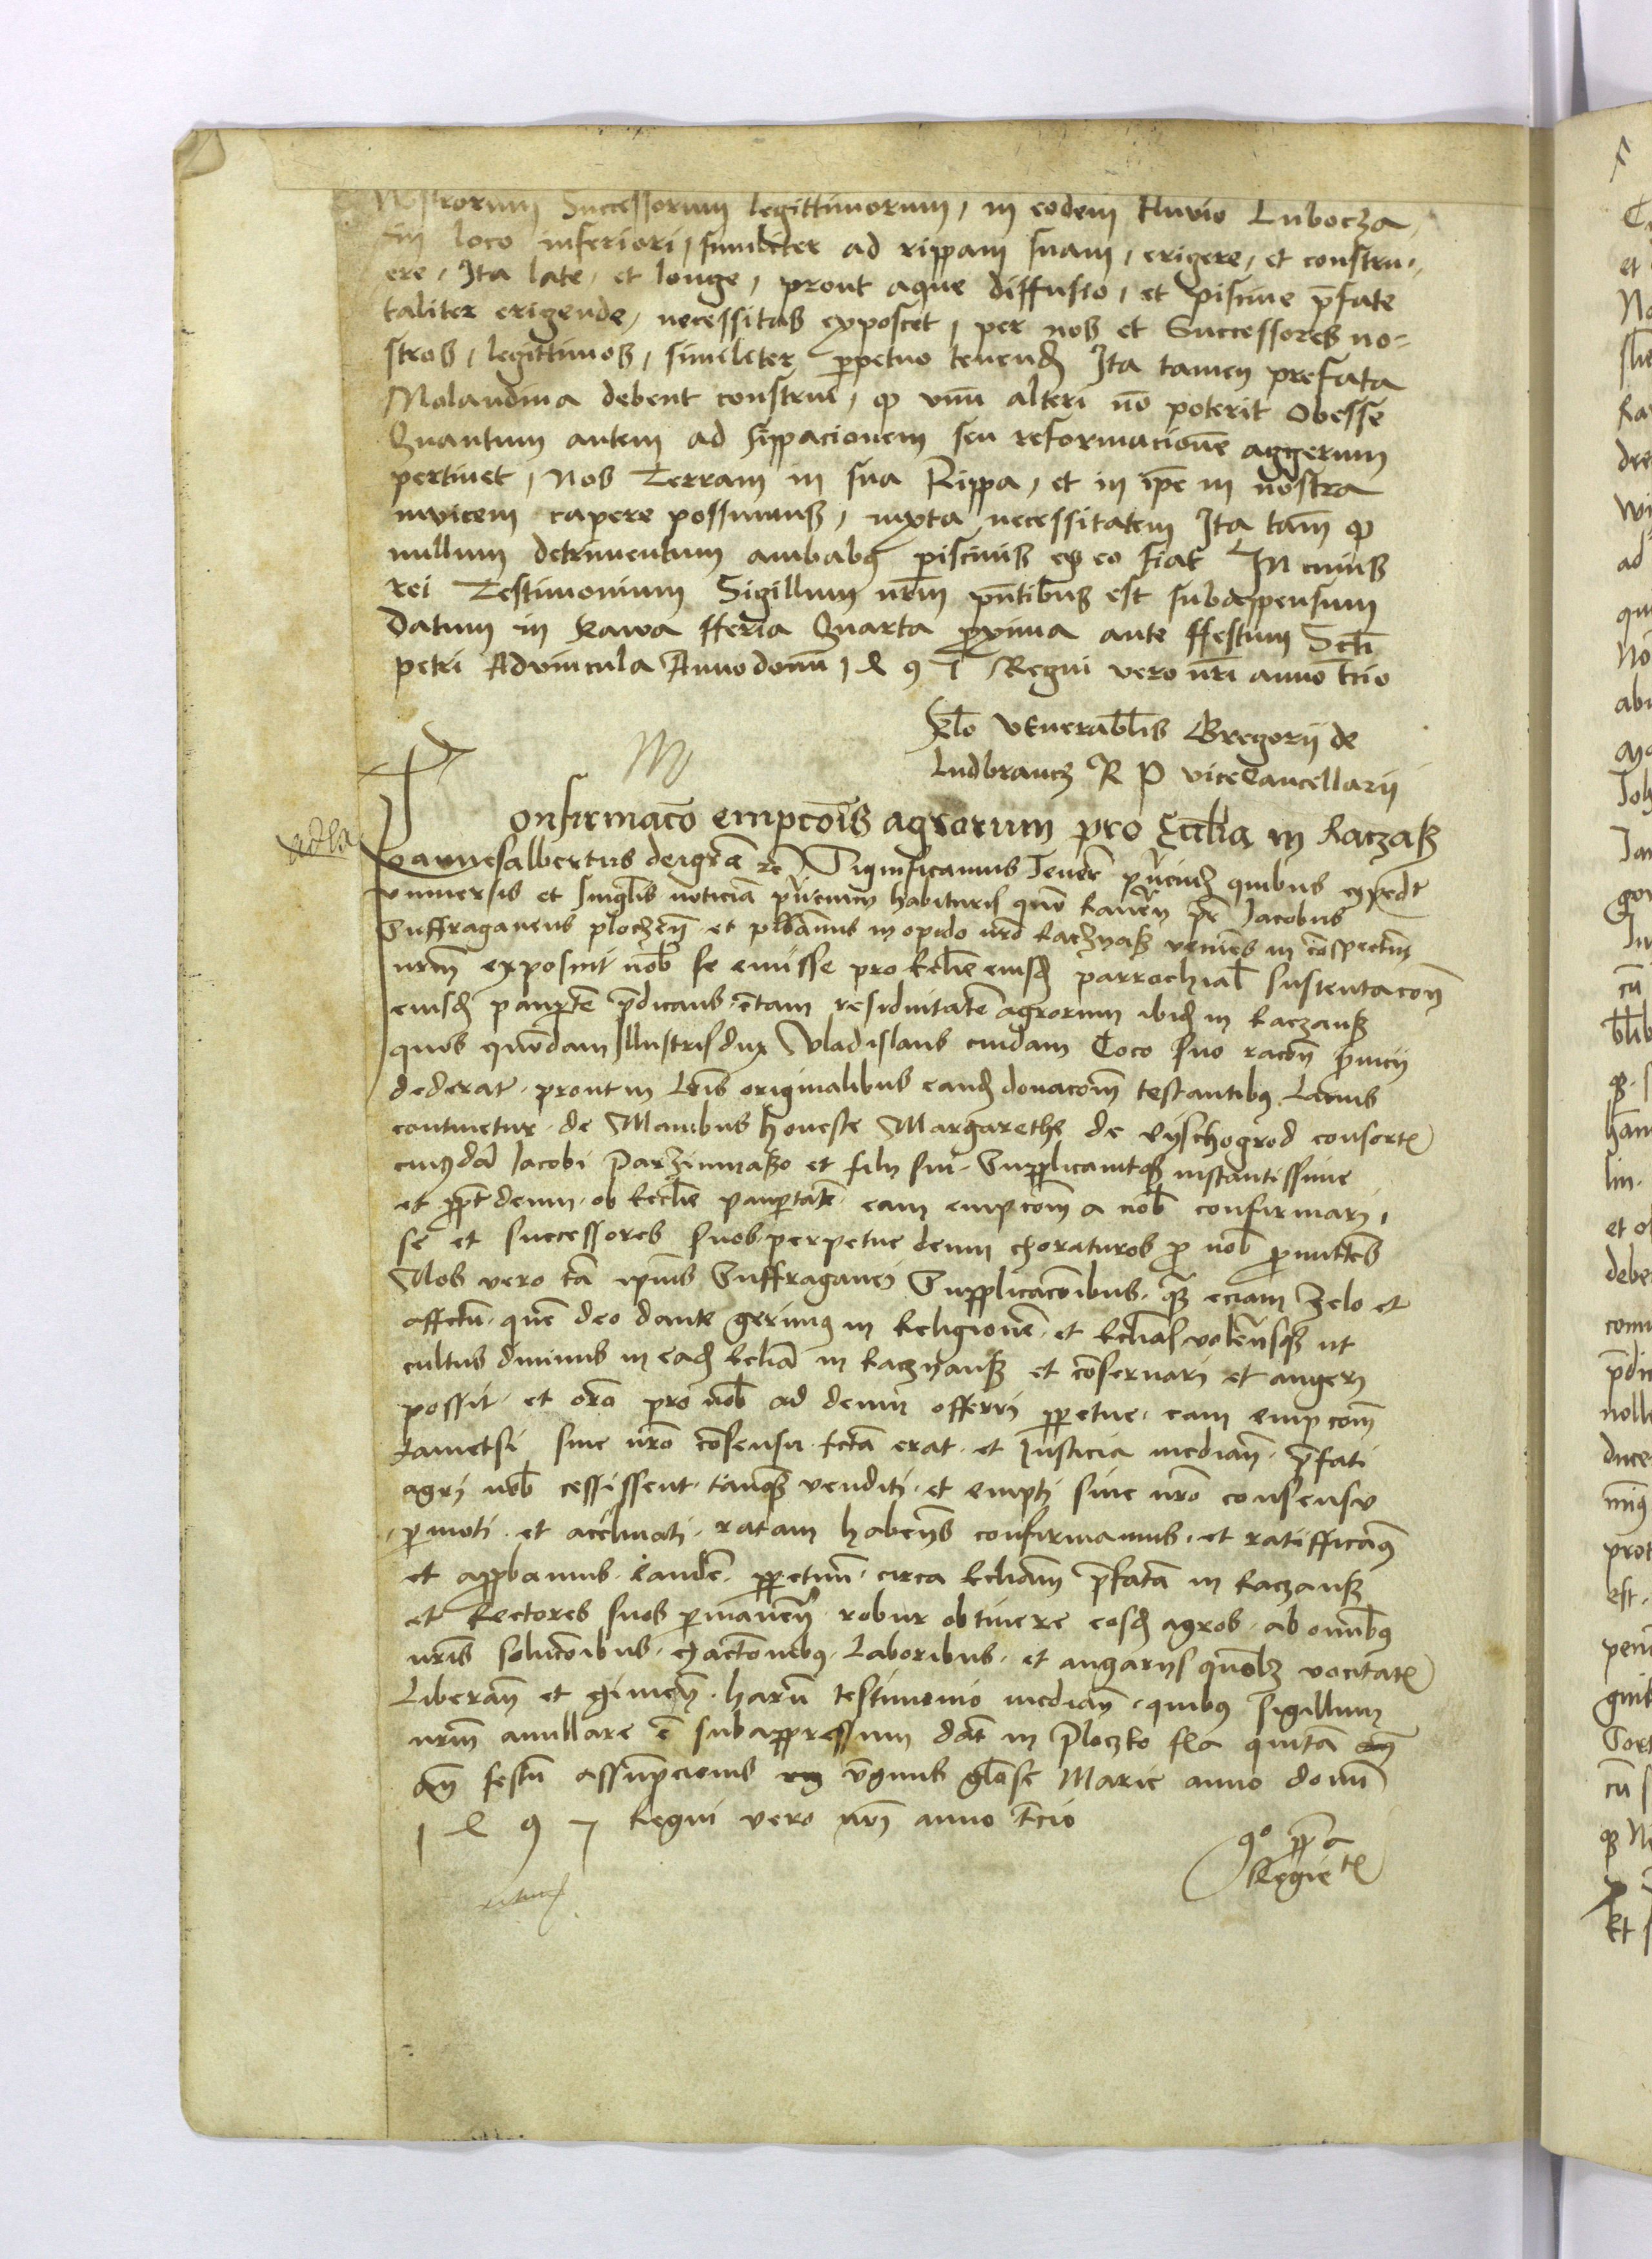 Nostrorum Successorum legittimorum, in eodem fluvio Lubocza
in loco inferiori, similiter ad rippam suam, erigere, et constru-
ere, Ita late, et longe, prout aque diffusio, et piscine p̄fate
taliter erigende, necessitas exposcet, per nos et Successores no-
stros, legittimos, similiter ꝑpetuo tenend Ita tamen prefata
Molandina debent construi, ꝙ vnū alteri nō poterit Obesse
Quantum autem ad sippacionem seu reformacionē aggerum
pertinet, Nos Terram in sua Rippa, et in ip̄e in nostra
invicem capere possumus, iuxta necessitatem Ita tam̄ ꝙ
nullum detrimentum ambabꝰ piscinis ex eo fiat In cuius
rei Testimonium Sigillum nr̄m pn̄tibus est subappensum
Datum in Rawa fferia Quarta ꝓxima ante ffestum Scti
petri Advincula Anno domī 1 4 9 5 Regni vero nr̄i anno tcio
Rlo vEnerablis Gregorij de
Ludbrancz R P viceCancellarij
onfirmac̄o empcōis agrorum pro Eccl̄ia in Raczasz
Joannesalbertus deigrā rc Significamus Tenor̄ pn̄ciuꝫ quibus expedt
vniuersis et singl̄is noticiā pn̄cium habituris quō Rauen̄ pr̄ Jacobus
Suffraganeus ploczen̄ et plbanus in opido nr̄o Raczyasz veniēs in cōspectum
nr̄m exposuit nob̄ se emisse pro Eccl̄ie eiusd parrochial̄ sustentacon̄
eiusd paupertē p̄dicans c̄tam residuitatē agrorum ibid in Raczansz
quos quōdam Illustris dux Vladislaus cuidam Coco suo racōn̄ s̄uicij
dederat prout in Lr̄is originalibus eand donacōm testantibꝰ Lacius
continetur de Manibus honeste Margarethe de Vyschogrod consort
cuiusdā Jacobi Parzinmaszo et filij sui Supplicauitqꝫ instantissime
et ꝓpt deum ob Eccl̄ie paupertatē eam empcōm a nob̄ confirmari,
se et successores suos perpetue deum exoraturos ꝓ nob̄ ꝓmittēs
Nos vero tā ip̄ius Suffraganei Supplicacōibus qꝫ eciam zelo et
affectu quē deo dante gerimus in Religionē et Eccl̄ias volentesqꝫ ut
cultus diuinus in ead Eccl̄ia in Raczyansz et cōseruari et augeri
possit et orō pro nob̄ ad deum offerri ꝑpetue eam empcōm
tametsi sine nr̄o cōsensu fctā erat et Iusticia median̄ p̄fati
agri nob̄ cessissent tanqꝫ venditi et empti sine nr̄o consensu
ꝑmoti et acclinati ratam habentes confirmamus et ratifficamꝰ
et apꝓbamus eandē ꝑpetuū circa Eccl̄iam p̄fatā in Raczansz
et Rectores suos ꝑmanen̄ robur obtinere eosd agros ab omnibꝰ
nr̄is solucōibus exactōnibꝰ Laboribus et angarijs quōlꝫ vocitat
Liberan̄ et eximen̄ harū testimonio median̄ quibꝰ sigillum
nr̄m anullare ē subappressum dat̄ in Ploczko fia quinta
an̄ festū assūpcionis v̄ginis gl̄ose Marie anno domī
1 4 9 5 Regni vero nr̄i anno tcio
9o ꝓp̄a
Regie tis